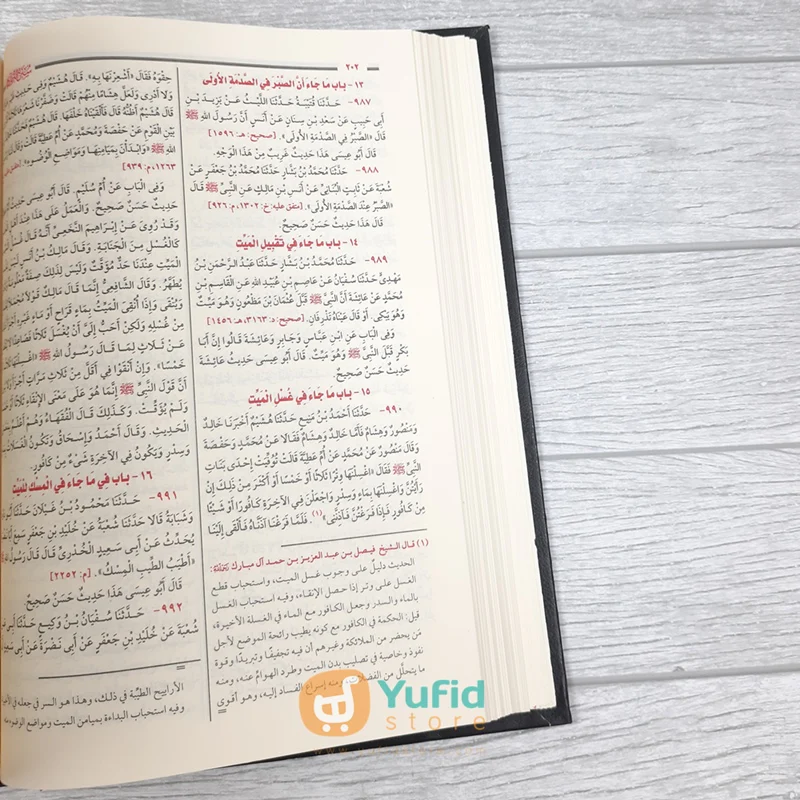 ٢٠٢
١٣- باب مَا جَاءَ أَنَّ الصَّبْرَ فِي الصَّدْمَةِ الأُولَى
٩٨٧- حَدَّثَنَا قُتَيْبَةُ حَدَّثَنَا اللَّيْثُ عَنْ يَزِيدَ بْنِ
أَبِي حَبِيبٍ عَنْ سَعْدِ بْنِ سِنَانٍ عَنْ أَنَسٍ أَنَّ رَسُولَ اللهِ ﷺ
قَالَ «الصَّبْرُ فِي الصَّدْمَةِ الأُولَى». [صحيح: هـ: ١٥٩٦]
قَالَ أَبُو عِيسَى هَذَا حَدِيثٌ غَرِيبٌ مِنْ هَذَا الْوَجْهِ.
٩٨٨- حَدَّثَنَا مُحَمَّدُ بْنُ بَشَّارٍ حَدَّثَنَا مُحَمَّدُ بْنُ جَعْفَرٍ عَنْ
شُعْبَةَ عَنْ ثَابِتٍ الْبُنَانِيِّ عَنْ أَنَسِ بْنِ مَالِكٍ عَنِ النَّبِيِّ ﷺ قَالَ
«الصَّبْرُ عِنْدَ الصَّدْمَةِ الأُولَى». [متفق عليه: خ: ١٣٠٢، م: ٩٢٦]
قَالَ هَذَا حَدِيثٌ حَسَنٌ صَحِيحٌ.
١٤- باب مَا جَاءَ فِي تَقْبِيلِ الْمَيِّتِ
٩٨٩- حَدَّثَنَا مُحَمَّدُ بْنُ بَشَّارٍ حَدَّثَنَا عَبْدُ الرَّحْمَنِ بْنُ
مَهْدِيٍّ حَدَّثَنَا سُفْيَانُ عَنْ عَاصِمِ بْنِ عُبَيْدِ اللهِ عَنِ الْقَاسِمِ بْنِ
مُحَمَّدٍ عَنْ عَائِشَةَ أَنَّ النَّبِيَّ ﷺ قَبَّلَ عُثْمَانَ بْنَ مَظْعُونٍ وَهُوَ مَيِّتٌ
وَهُوَ يَبْكِي. أَوْ قَالَ عَيْنَاهُ تَذْرِفَانِ. [صحيح: د: ٣١٦٣، هـ: ١٤٥٦]
وَفِي الْبَابِ عَنِ ابْنِ عَبَّاسٍ وَجَابِرٍ وَعَائِشَةَ قَالُوا إِنَّ أَبَا
بَكْرٍ قَبَّلَ النَّبِيَّ ﷺ وَهُوَ مَيِّتٌ. قَالَ أَبُو عِيسَى حَدِيثُ عَائِشَةَ
حَدِيثٌ حَسَنٌ صَحِيحٌ.
١٥- باب مَا جَاءَ فِي غُسْلِ الْمَيِّتِ
٩٩٠- حَدَّثَنَا أَحْمَدُ بْنُ مَنِيعٍ حَدَّثَنَا هُشَيْمٌ أَخْبَرَنَا خَالِدٌ
وَمَنْصُورٌ وَهِشَامٌ فَأَمَّا خَالِدٌ وَهِشَامٌ فَقَالاَ عَنْ مُحَمَّدٍ وَحَفْصَةَ
وَقَالَ مَنْصُورٌ عَنْ مُحَمَّدٍ عَنْ أُمِّ عَطِيَّةَ قَالَتْ تُوُفِّيَتْ إِحْدَى بَنَاتِ
النَّبِيِّ ﷺ فَقَالَ «اغْسِلْنَهَا وِتْرًا ثَلاَثًا أَوْ خَمْسًا أَوْ أَكْثَرَ مِنْ ذَلِكَ إِنْ
رَأَيْتُنَّ وَاغْسِلْنَهَا بِمَاءٍ وَسِدْرٍ وَاجْعَلْنَ فِي الآخِرَةِ كَافُورًا أَوْ شَيْئًا
مِنْ كَافُورٍ فَإِذَا فَرَغْتُنَّ فَآذِنَّنِي»(١). فَلَمَّا فَرَغْنَا آذَنَّاهُ فَأَلْقَى إِلَيْنَا
(١) قال الشيخ فيصل بن عبد العزيز بن حمد آل مبارك
الحديث دليلٌ على وجوب غسل الميت، واستحباب قطع
الغسل على وتر إذا حصل الإنقاء، وفيه استحباب الغسل
بالماء والسدر وجعل الكافور مع الماء في الغسلة الأخيرة،
قيل: الحكمة في الكافور مع كونه يطيب رائحة الموضع لأجل
من يحضر من الملائكة وغيرهم أن فيه تجفيفًا وتبريدًا وقوة
نفوذ وخاصية في تصليب بدن الميت وطرد الهوامّ عنه، ومنه
ما يتحلّل من الفضلات، ومنه إسراع الفساد إليه، وهو أقوى
حِقْوَهُ فَقَالَ «أَشْعِرْنَهَا بِهِ». قَالَ هُشَيْمٌ وَفِي حَدِيثِ
وَلاَ أَدْرِي وَلَعَلَّ هِشَامًا مِنْهُمْ قَالَتْ وَضَفَّرْنَا شَعْرَهَا
قَالَ هُشَيْمٌ أَظُنُّهُ قَالَ فَأَلْقَيْنَاهُ خَلْفَهَا. قَالَ هُشَيْمٌ
بَيْنِ الْقَوْمِ عَنْ حَفْصَةَ وَمُحَمَّدٍ عَنْ أُمِّ عَطِيَّةَ قَالَتْ
ﷺ «وَابْدَأْنَ بِمَيَامِنِهَا وَمَوَاضِعِ الْوُضُوءِ».
١٢٦٣، م: ٩٣٩]
وَفِي الْبَابِ عَنْ أُمِّ سُلَيْمٍ. قَالَ أَبُو عِيسَى
حَدِيثٌ حَسَنٌ صَحِيحٌ. وَالْعَمَلُ عَلَى هَذَا عِنْدَ
وَقَدْ رُوِيَ عَنْ إِبْرَاهِيمَ النَّخَعِيِّ أَنَّهُ قَالَ
كَالْغُسْلِ مِنَ الْجَنَابَةِ. وَقَالَ مَالِكُ بْنُ أَنَسٍ
الْمَيِّتِ عِنْدَنَا حَدٌّ مُؤَقَّتٌ وَلَيْسَ لِذَلِكَ صِفَةٌ
يُطَهَّرُ. وَقَالَ الشَّافِعِيُّ إِنَّمَا قَالَ مَالِكٌ قَوْلاً
وَيُنَقَّى وَإِذَا أُنْقِيَ الْمَيِّتُ بِمَاءٍ قَرَاحٍ أَوْ مَاءٍ غَيْرِهِ
مِنْ غُسْلِهِ وَلَكِنْ أَحَبُّ إِلَيَّ أَنْ يُغْسَلَ ثَلاَثًا فَصَاعِدًا
عَنْ ثَلاَثٍ لِمَا قَالَ رَسُولُ اللهِ ﷺ
خَمْسًا». وَإِنْ أَنْقَوْا فِي أَقَلَّ مِنْ ثَلاَثِ مَرَّاتٍ
أَنَّ قَوْلَ النَّبِيِّ ﷺ إِنَّمَا هُوَ عَلَى مَعْنَى الإِنْقَاءِ
وَلَمْ يُؤَقِّتْ. وَكَذَلِكَ قَالَ الْفُقَهَاءُ وَهُمْ أَعْلَمُ
الْحَدِيثِ. وَقَالَ أَحْمَدُ وَإِسْحَاقُ وَتَكُونُ الْغَسَلاَتُ
وَسِدْرٍ وَيَكُونُ فِي الآخِرَةِ شَيْءٌ مِنْ كَافُورٍ.
١٦- باب فِي مَا جَاءَ فِي الْمِسْكِ لِلْمَيِّتِ
٩٩١- حَدَّثَنَا مَحْمُودُ بْنُ غَيْلاَنَ حَدَّثَنَا
وَشَبَابَةُ قَالاَ حَدَّثَنَا شُعْبَةُ عَنْ خُلَيْدِ بْنِ جَعْفَرٍ سَمِعَ
يُحَدِّثُ عَنْ أَبِي سَعِيدٍ الْخُدْرِيِّ قَالَ قَالَ رَسُولُ
«أَطْيَبُ الطِّيبِ الْمِسْكُ». [م: ٢٢٥٢]
قَالَ أَبُو عِيسَى هَذَا حَدِيثٌ حَسَنٌ صَحِيحٌ.
٩٩٢- حَدَّثَنَا سُفْيَانُ بْنُ وَكِيعٍ حَدَّثَنَا
شُعْبَةَ عَنْ خُلَيْدِ بْنِ جَعْفَرٍ عَنْ أَبِي نَضْرَةَ عَنْ أَبِي
الأراييح الطيّبة في ذلك، وهذا هو السر في جعله في
وفيه استحباب البداءة بميامن الميت ومواضع الوضوء
Yufid
store